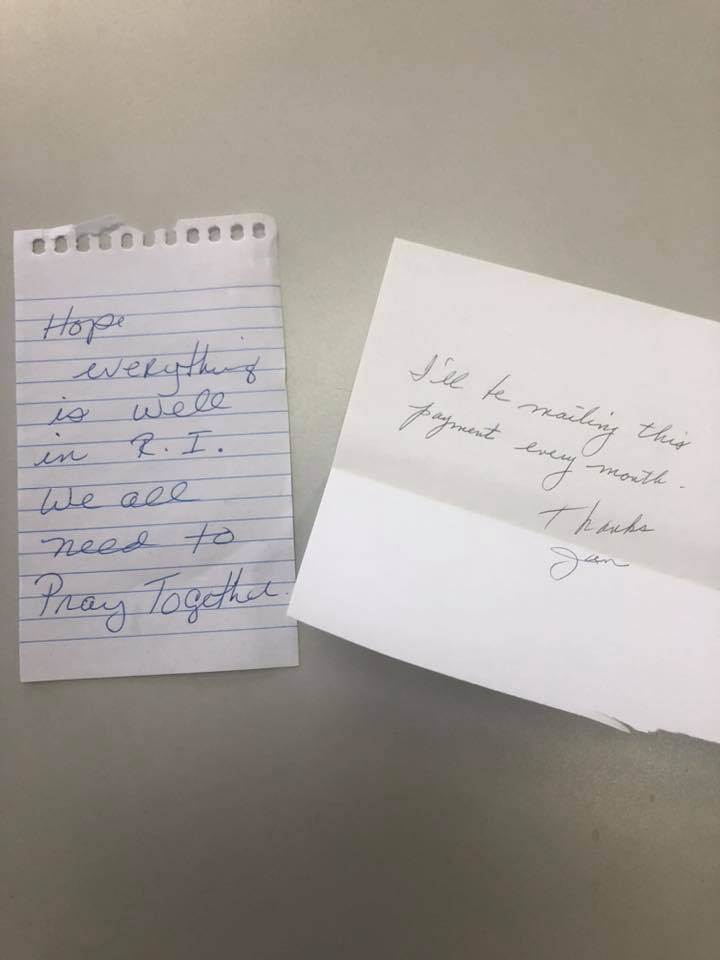 Hope
everything
is well
in R.I.
We all
need to
Pray Together.
I'll be mailing this
payment every month.
Thanks
Jan